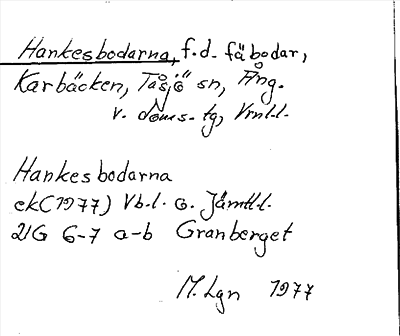 Hankesbodarna, f.d. fäbodar,
Karbäcken, Tåsjö sn, Ång.
v. doms. tg, Vrnl.l.
Hankesbodarna
ek (1977) Vb.l. o. Jämtl.l.
21G 6-7 a-b Granberget
M. Lgn 1977